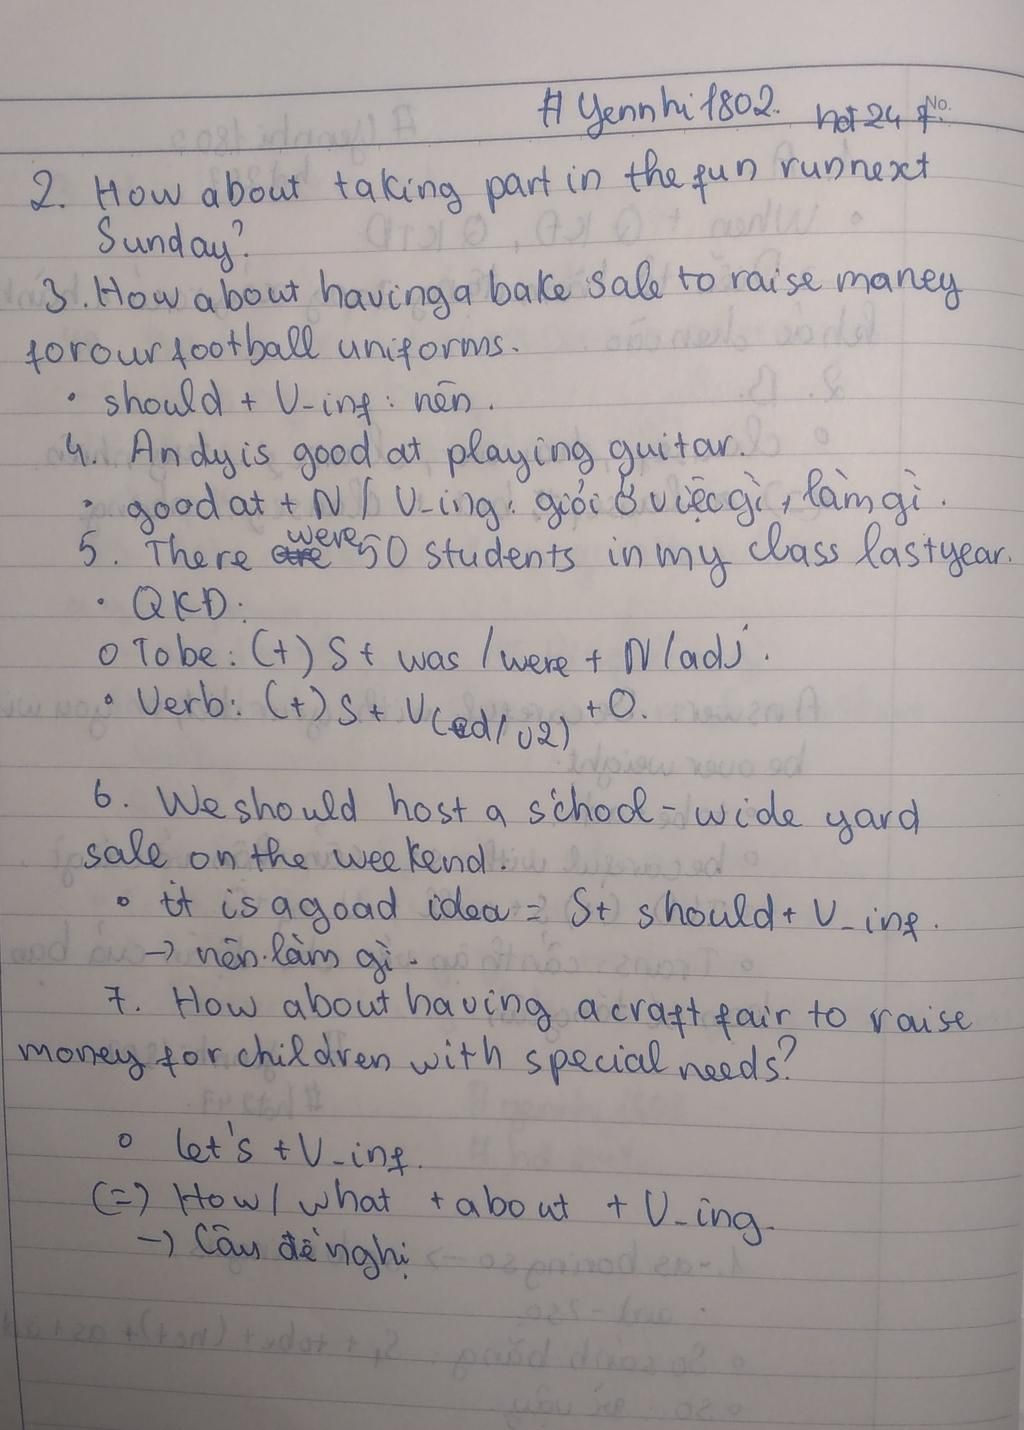 # Yennhi1802. hot 24 7. No.
2. How about taking part in the fun run next
Sunday?
3. How about having a bake sale to raise money
for our football uniforms.
• should + V-inf: nên.
4. Andy is good at playing guitar.
• good at + N / V-ing: giỏi ở việc gì, làm gì.
5. There are were 50 students in my class last year.
• QKĐ:
o Tobe: (+) S + was / were + N / adj.
• Verb: (+) S + V(ed / v2) + O.
6. We should host a school-wide yard
sale on the weekend.
• it is a good idea = S + should + V_inf.
→ nên làm gì.
7. How about having a craft fair to raise
money for children with special needs?
o let's + V_inf.
(=) How / what + about + V_ing.
→ Câu đề nghị